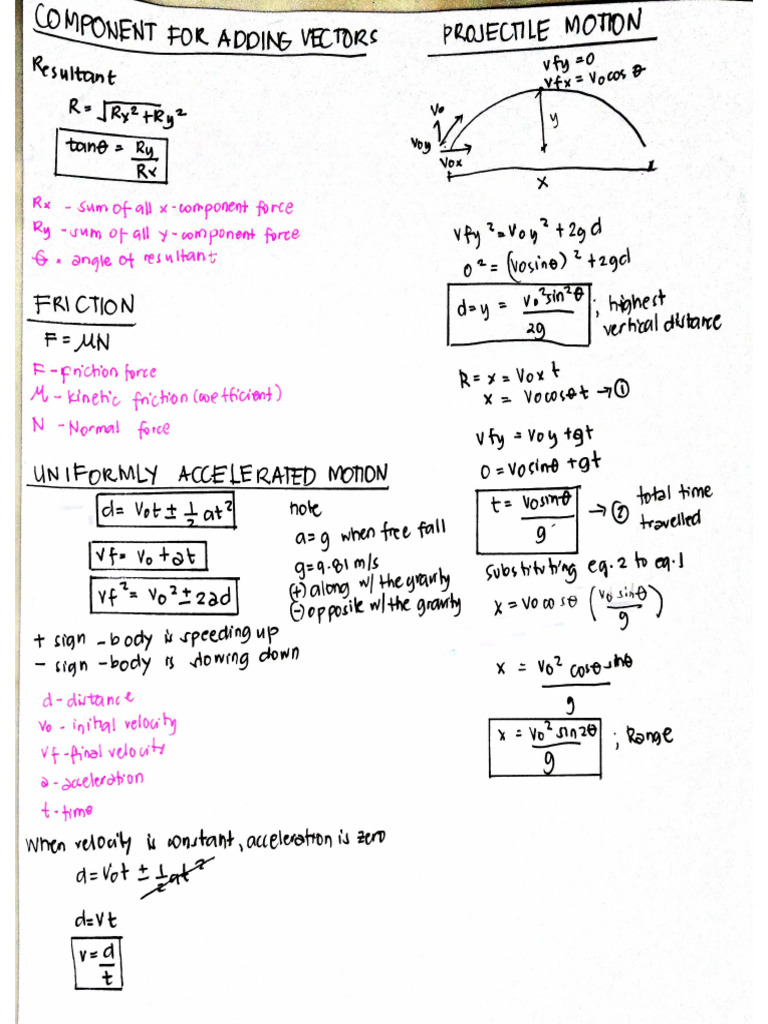 COMPONENT FOR ADDING VECTORS
Resultant
R = √Rx² + Ry²
tanθ = Ry/Rx
Rx - sum of all x-component force
Ry - sum of all y-component force
θ = angle of resultant
FRICTION
F = μN
F - friction force
μ - kinetic friction (coefficient)
N - Normal force
UNIFORMLY ACCELERATED MOTION
d = Vot ± 1/2 at²
Vf = Vo + at
Vf² = Vo² ± 2ad
note
a = g when free fall
g = 9.81 m/s
(+) along w/ the gravity
(-) opposite w/ the gravity
+ sign - body is speeding up
- sign - body is slowing down
d - distance
Vo - initial velocity
Vf - final velocity
a - acceleration
t - time
When velocity is constant, acceleration is zero
d = Vot ± 1/2 at²
d = Vt
v = d/t
PROJECTILE MOTION
Vfy = 0
Vfx = Vo cos θ
Vo
Voy
Vox
y
x
Vfy² = Voy² + 2gd
0² = (Vosinθ)² + 2gd
d = y = Vo²sin²θ/2g ; highest
vertical distance
R = x = Vox t
x = Vocosθt → ①
Vfy = Voy + gt
0 = Vosinθ + gt
t = Vosinθ/g → ② total time
travelled
Substituting eq.2 to eq.1
x = Vo cosθ (Vo sinθ/g)
x = Vo² cosθsinθ/g
x = Vo² sin2θ/g ; Range